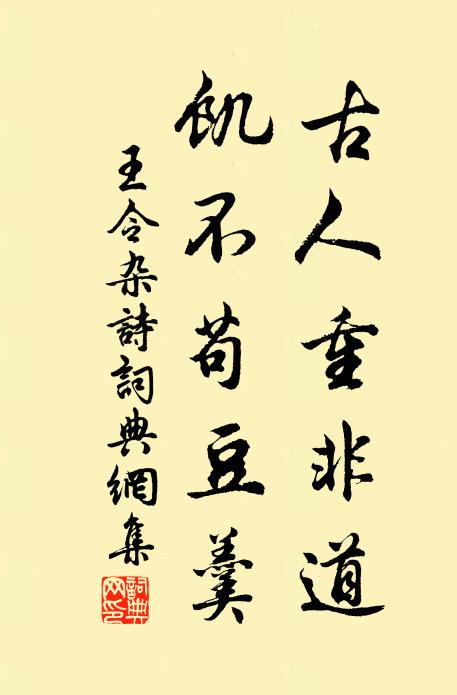 古人重非道
飢不苟豆羹
王令杂詩詞典網集
詞典網印